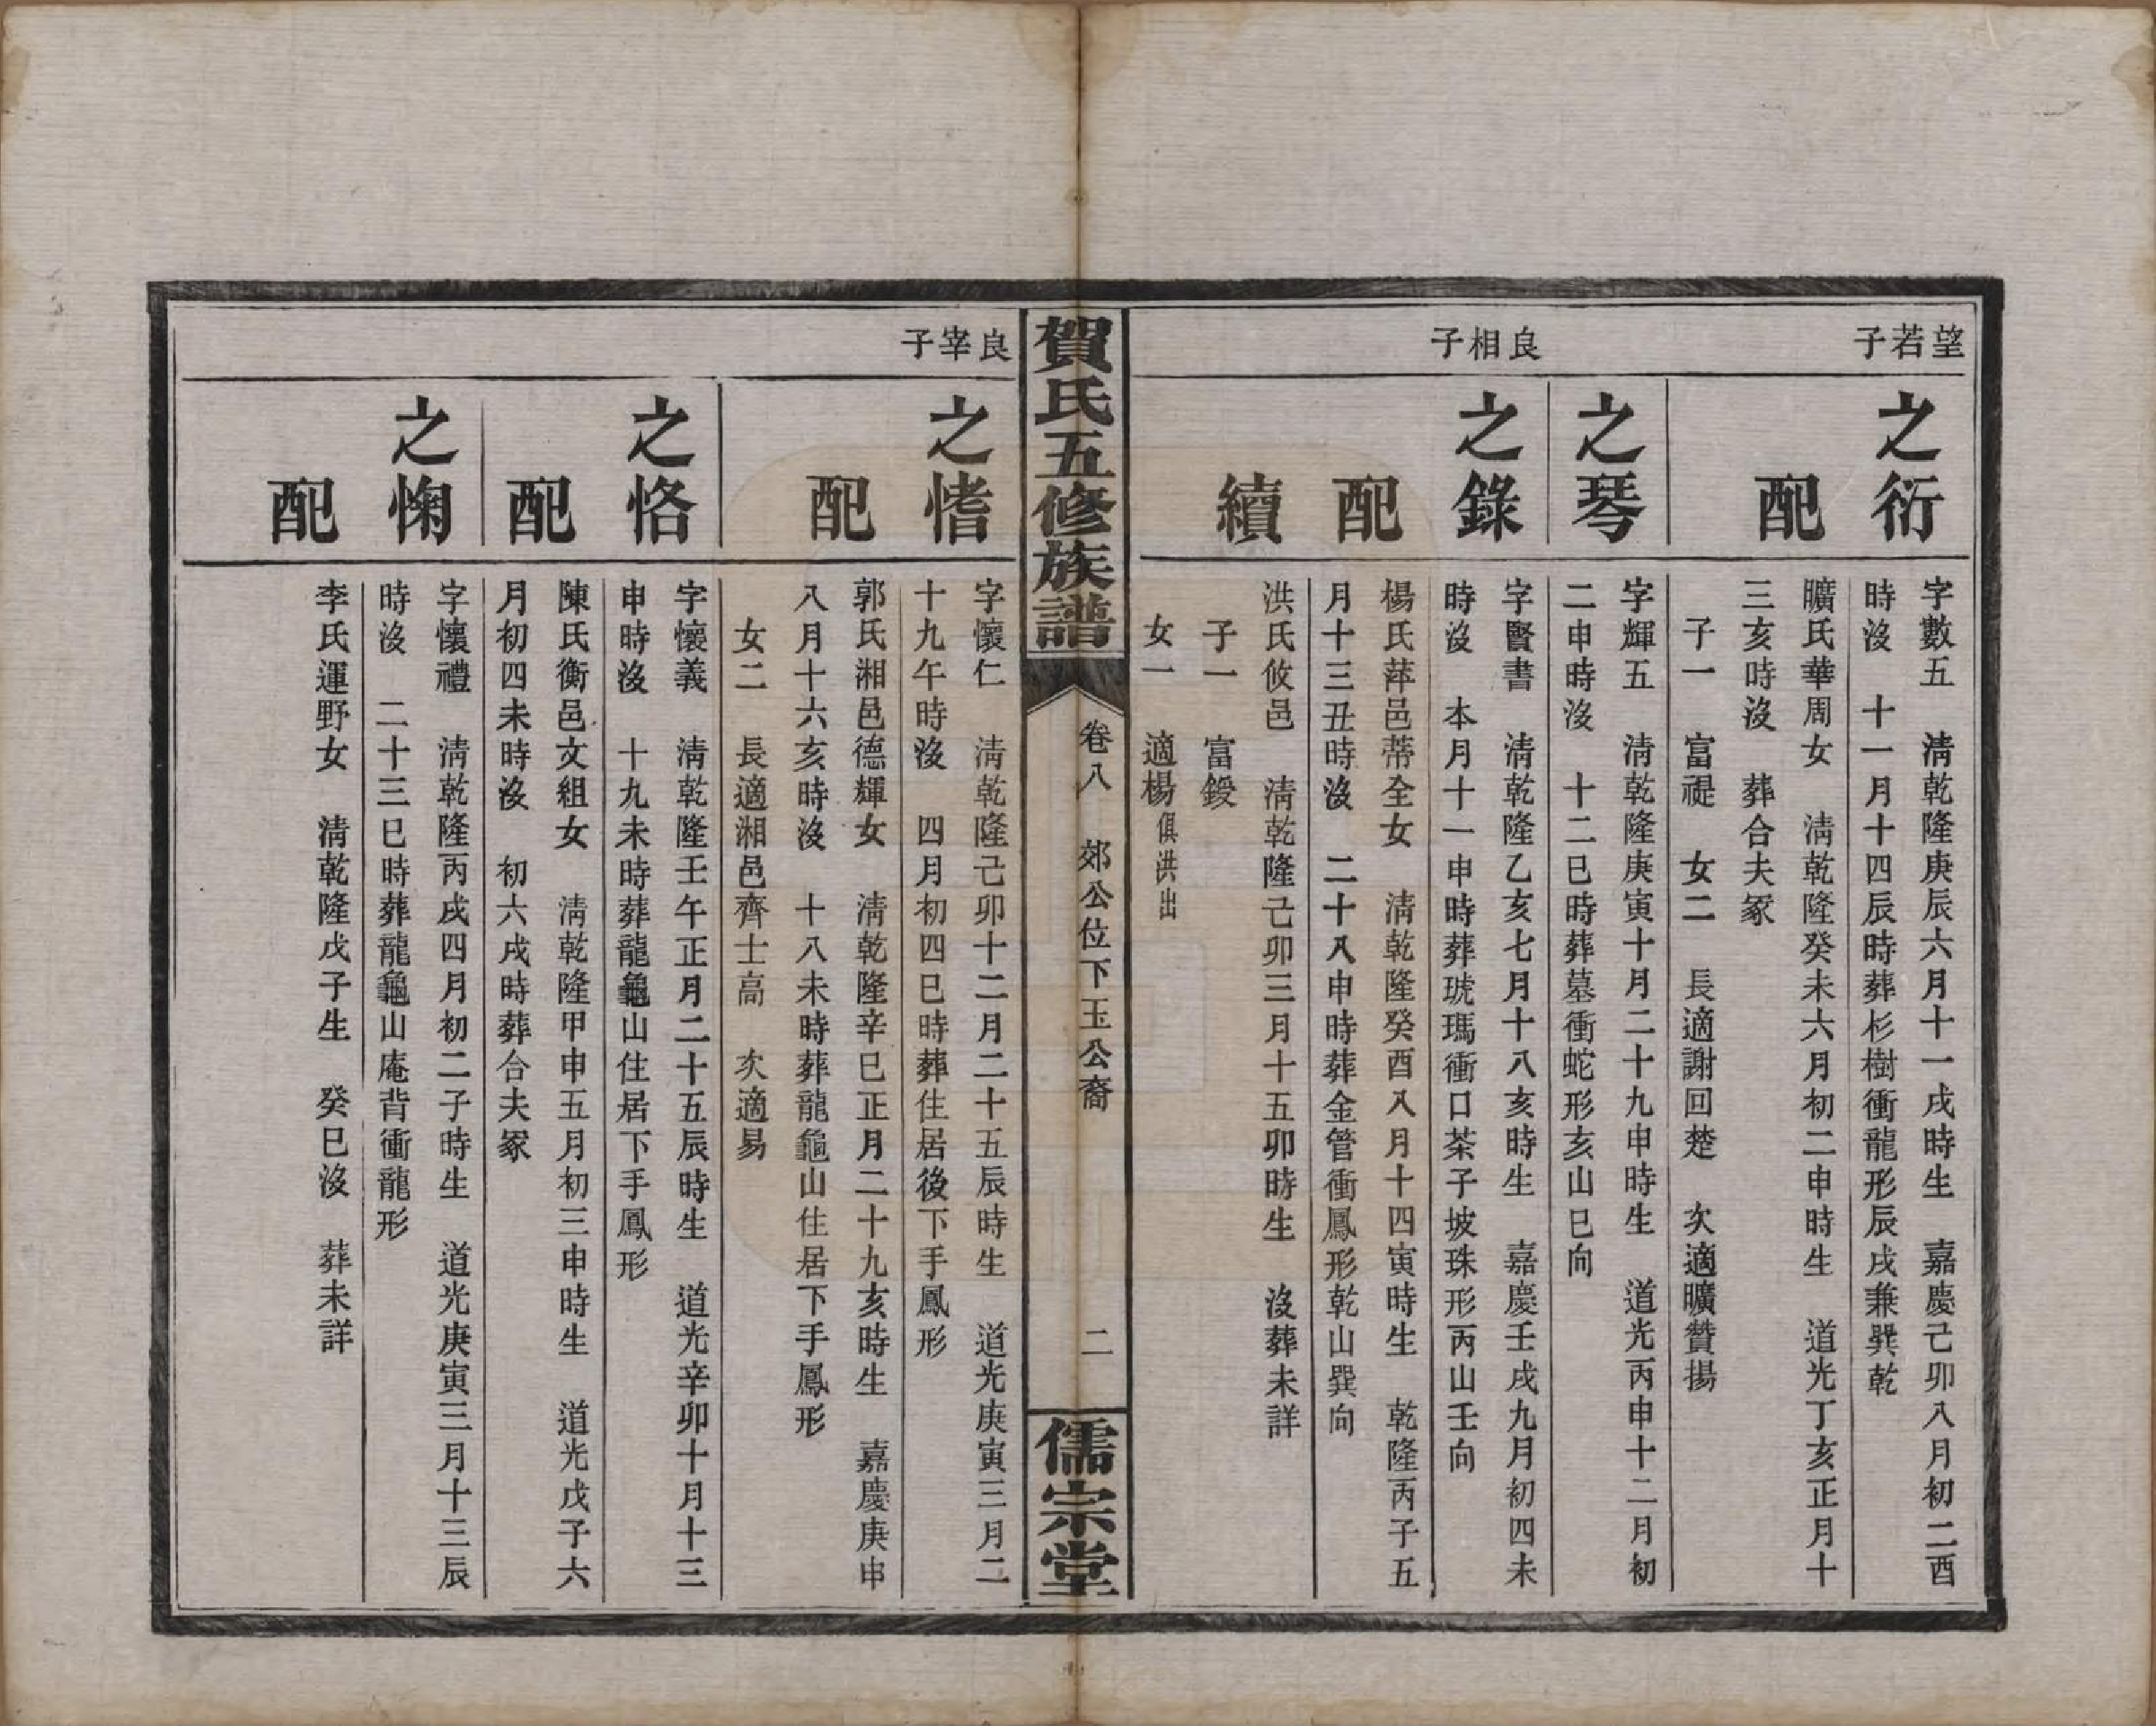 望若子
之衍
字數五　清乾隆庚辰六月十一戌時生　嘉慶己卯八月初二酉
時沒　十一月十四辰時葬杉樹衝龍形辰戌兼巽乾
配
曠氏華周女　清乾隆癸未六月初二申時生　道光丁亥正月十
三亥時沒　葬合夫冢
子一　富禔　女二　長適謝回楚　次適曠贊揚
良相子
之琴
字輝五　清乾隆庚寅十月二十九申時生　道光丙申十二月初
二申時沒　十二巳時葬墓衝蛇形亥山巳向
之錄
字賢書　清乾隆乙亥七月十八亥時生　嘉慶壬戌九月初四未
時沒　本月十一申時葬琥瑪衝口茶子坡珠形丙山壬向
配
楊氏萍邑蒂全女　清乾隆癸酉八月十四寅時生　乾隆丙子五
月十三丑時沒　二十八申時葬金管衝鳳形乾山巽向
續
洪氏攸邑　清乾隆己卯三月十五卯時生　沒葬未詳
子一　富鍐
女一　適楊俱洪出
賀氏五修族譜
卷八　郊公位下玉公裔
二
儒宗堂
良宰子
之愭
字懷仁　清乾隆己卯十二月二十五辰時生　道光庚寅三月二
十九午時沒　四月初四巳時葬住居後下手鳳形
配
郭氏湘邑德輝女　清乾隆辛巳正月二十九亥時生　嘉慶庚申
八月十六亥時沒　十八未時葬龍龜山住居下手鳳形
女二　長適湘邑齊士高　次適易
之恪
字懷義　清乾隆壬午正月二十五辰時生　道光辛卯十月十三
申時沒　十九未時葬龍龜山住居下手鳳形
配
陳氏衡邑文組女　清乾隆甲申五月初三申時生　道光戊子六
月初四未時沒　初六戌時葬合夫冢
之㥌
字懷禮　清乾隆丙戌四月初二子時生　道光庚寅三月十三辰
時沒　二十三巳時葬龍龜山庵背衝龍形
配
李氏運野女　清乾隆戊子生　癸巳沒　葬未詳